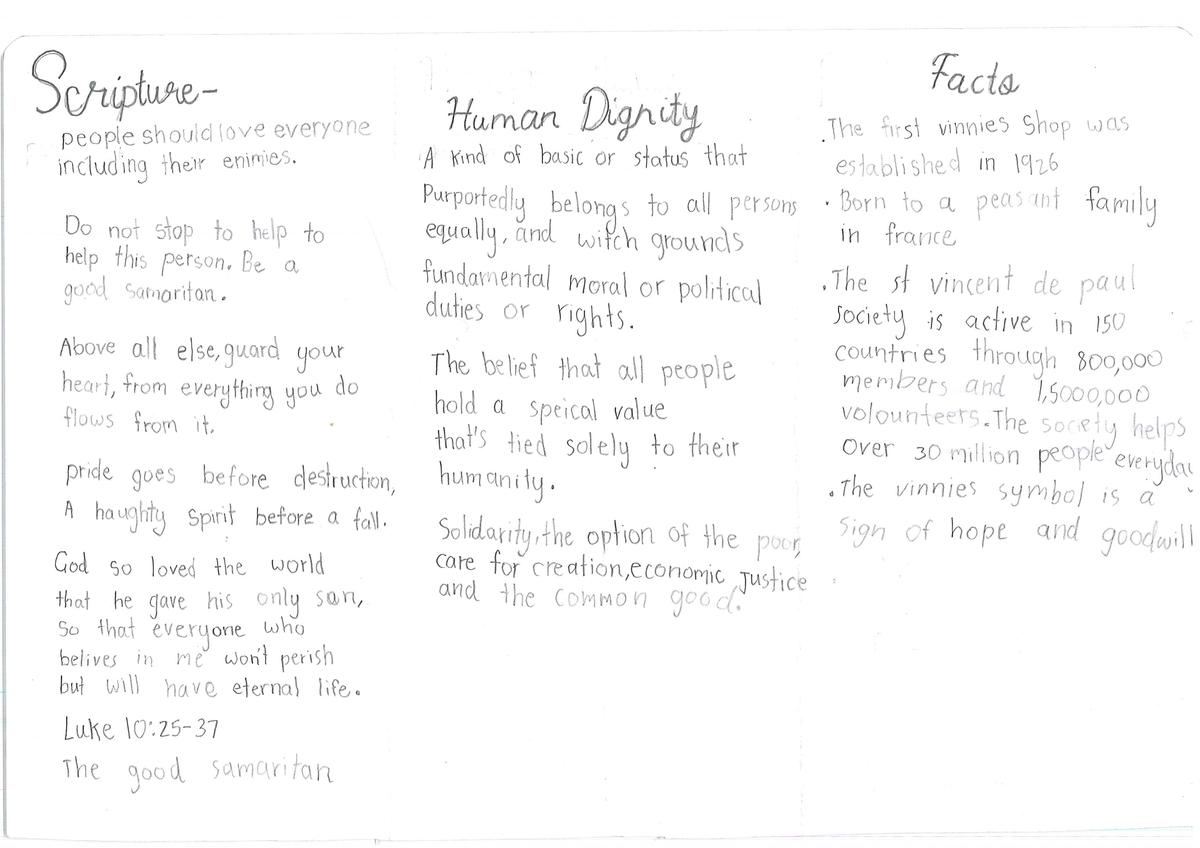 Scripture-
people should love everyone
including their enimies.
Do not stop to help to
help this person. Be a
good samaritan.
Above all else, guard your
heart, from everything you do
flows from it.
pride goes before destruction,
A haughty spirit before a fall.
God so loved the world
that he gave his only son,
So that everyone who
belives in me won't perish
but will have eternal life.
Luke 10:25-37
The good samaritan
Human Dignity
A kind of basic or status that
Purportedly belongs to all persons
equally, and witch grounds
fundamental moral or political
duties or rights.
The belief that all people
hold a speical value
that's tied solely to their
humanity.
Solidarity, the option of the poor,
care for creation, economic Justice
and the common good.
Facts
.The first vinnies Shop was
established in 1926
. Born to a peasant family
in france
.The st vincent de paul
society is active in 150
countries through 800,000
members and 1,5000,000
volounteers. The society helps
over 30 million people everyday
.The vinnies symbol is a
sign of hope and goodwill